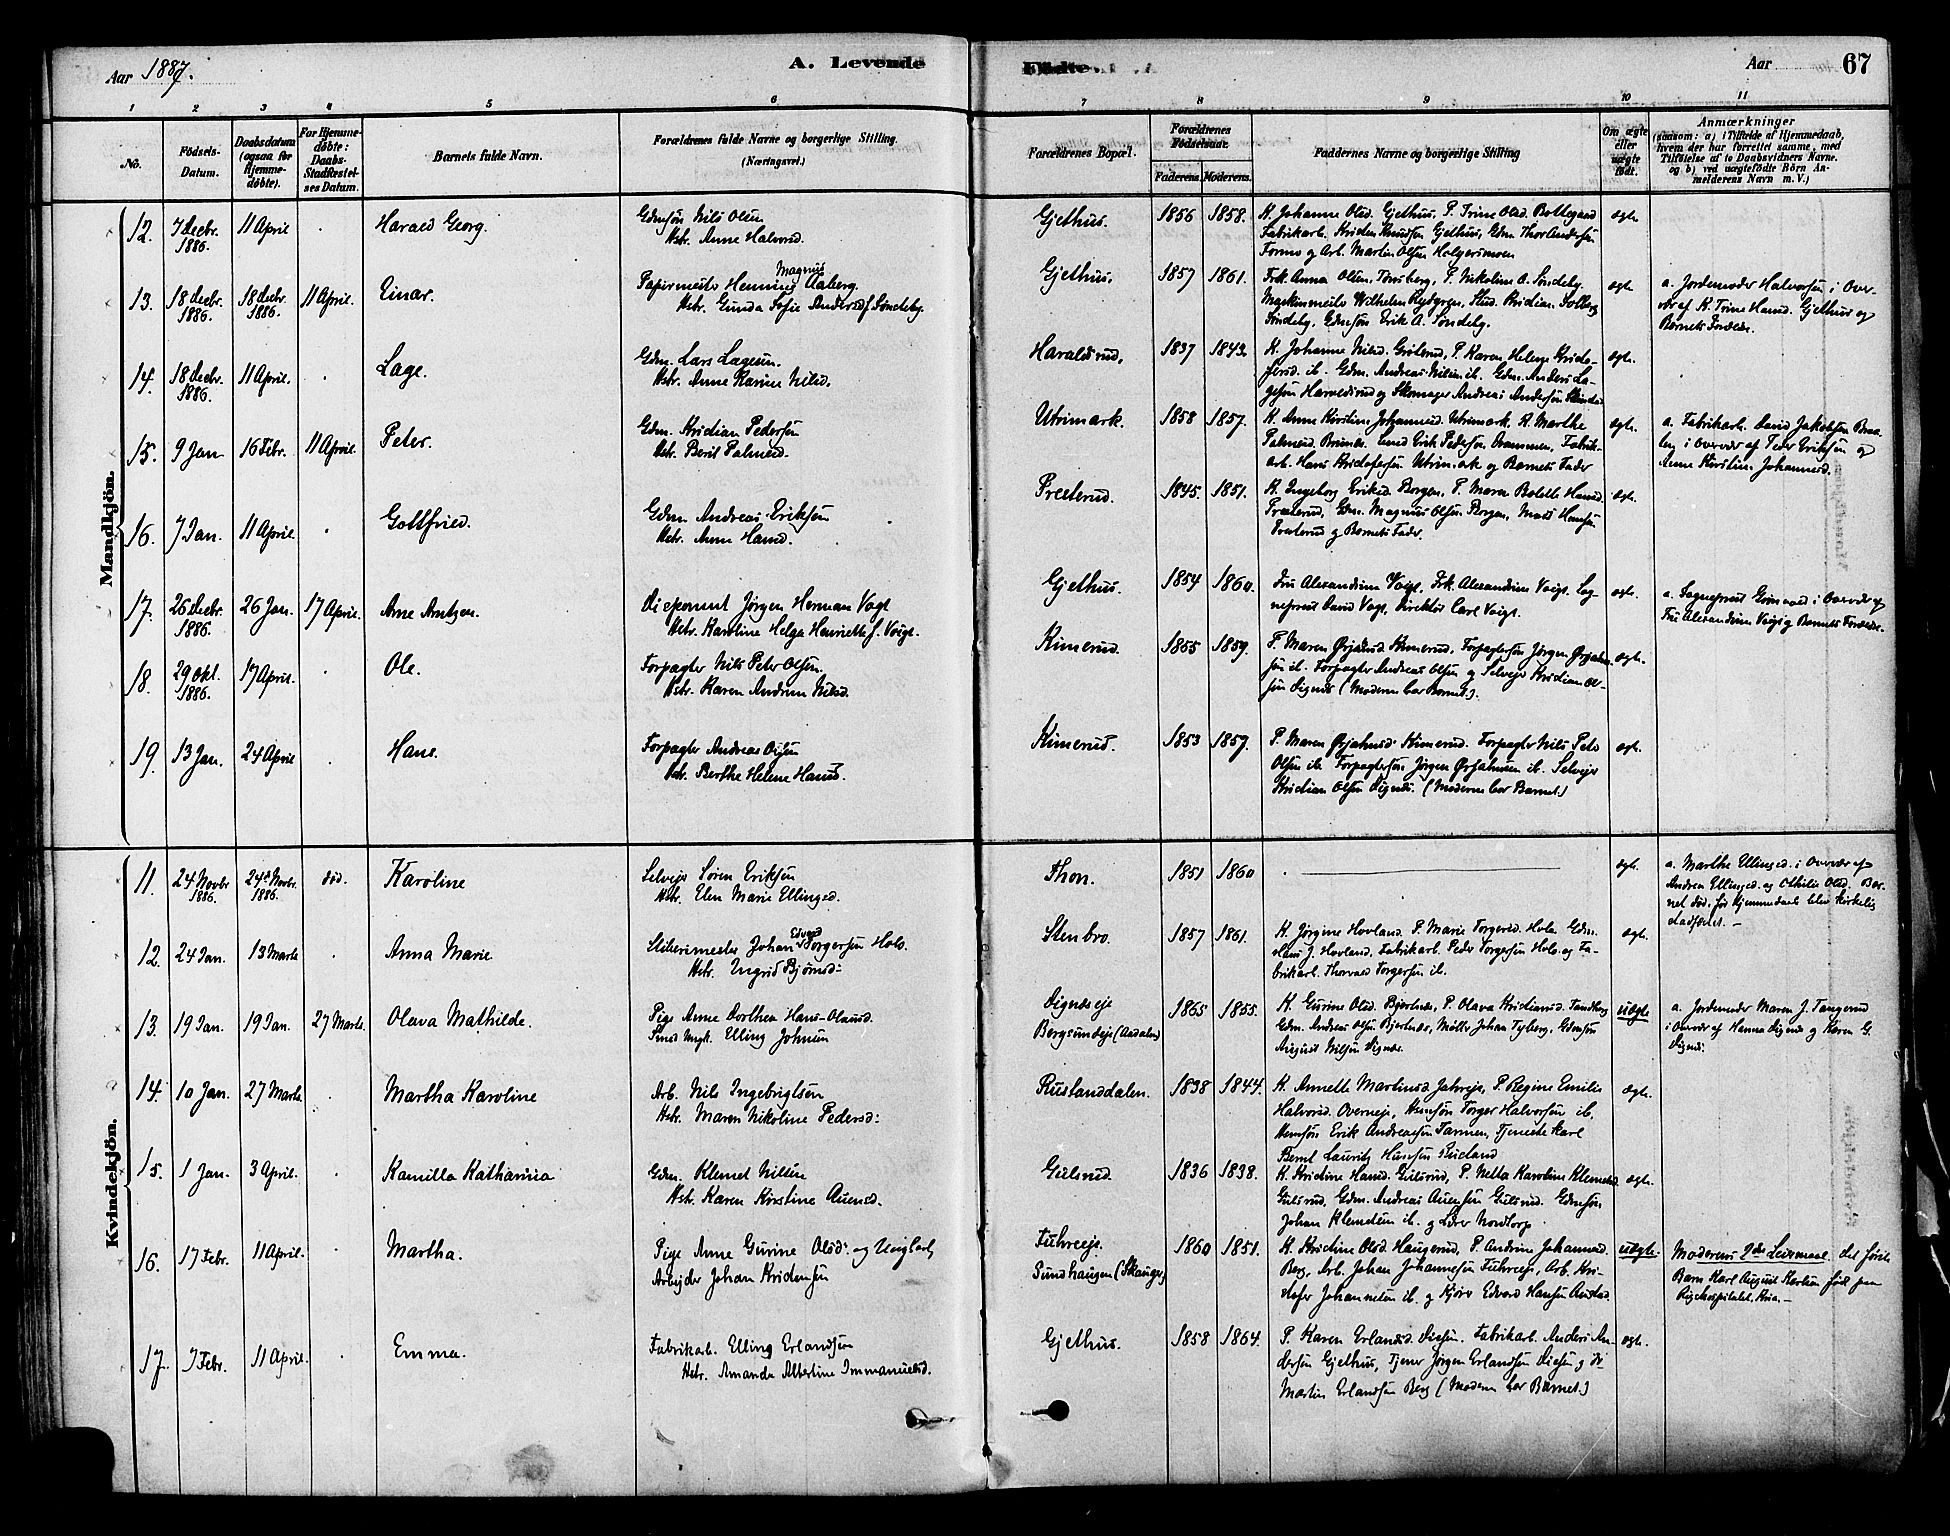 Aar 1887.
A. Levende Fødte.
Aar 67
1 2 3 4 5 6 7 8 9 10 11
No.
Födsels-Datum.
Daabsdatum (ogsaa for Hjemme-döbte).
For Hjemme-döbte: Daabs-Stadfæstel-ses Datum.
Barnets fulde Navn.
Forældrenes fulde Navne og borgerlige Stilling. (Næringsvei.)
Forældrenes Bopæl.
Forældrenes Födselsaar.
Faderens. Moderens.
Faddernes Navne og borgerlige Stilling
Om ægte eller uægte födt.
Anmærkninger
(saasom: a) i Tilfælde af Hjemmedaab,
hvem der har forrettet samme, med
Tilföielse af to Daabsvidners Navne.
og b) ved uægtefödte Börn An-
melderens Navn m. V.)
Mandkjön.
12. 7 Decbr. 1886. 11 April . Harald Georg.
Gdmsön Nils Olsen
Hstr. Anne Halvorsd.
Gjethus. 1856 1858.
K. Johanne Olsd. Gjethus, P. Trine Olsd. Bottegaard
Fabrikarb. Kristen Knudsen Gjethus, Gdm. Thor Andersen
Formo og Arb. Martin Olsen Holgersmoen
ægte
13. 18 Decbr. 1886. 18 Decbr. 1886. 11 April. Einar.
Papirmester Henning Magnus Aaberg.
Hstr. Gunda Sofie Andersd. f. Söndeby.
Gjethus. 1857 1861.
Frk. Anna Olsen, Tonsberg, P. Nikoline A. Söndeby.
Maskinmester Wilhelm Rydgren, Stud. Kristian Solberg
Söndeby, Gdmsön Erik A. Söndeby.
ægte
a. Jordemoder Halvorsen i Over-
vær af K. Trine Hansd. Gjethus og
Barnets Forældre.
14. 18 Decbr. 1886. 11 April. . Lage.
Gdm. Lars Lagesen.
Hstr. Anne Karine Nilsd.
Haraldsrud. 1837 1843.
K. Johanne Nilsd. Grilsrud, P. Karen Helene Kristo-
fersd. ib. Gdm. Andreas Nilsen ib. Gdm. Anders La-
gesen Haraldsrud og Skomager Andreas Andersen
ægte.
15. 9 Jan 16 Febr. 11 April. Peter.
Gdm. Kristian Pedersen
Hstr. Berit Palmesd.
Utrimark. 1858 1857.
K. Anne Kirstine Johannesd. Utrimark. K. Marthe
Palmesd. Erik Pedersen Drammen, Fabrik-
arb. Hans Kristofersen Utrimark og Barnets Fader
ægte.
a. Fabrikarb. David Jakobsen Braa-
ten i Overvær af Peder Eriksen og
Anne Kirstine Johannesd.
16. 7 Jan. 11 April. . Gottfried.
Gdm. Andreas Eriksen
Hstr. Anne Hansd.
Præterud. 1845. 1851.
K. Ingeborg Eriksd. Borgen, P. Maren Bolette Hansd.
Præterud, Gdm. Magnus Olsen Borgen, Mads Hansen
Præterud og Barnets Fader.
ægte.
17. 26 Decbr. 1886. 26 Jan. 17 April. Arne Arntzen.
Disponent Jörgen Herman Vogt
Hstr. Karoline Helga Henriette f. Voigt.
Gjethus. 1854 1860.
Fru Alexandrine Voigt, Frk. Alexandrine Voigt. Sog-
neprest David Vogt, Direktör Carl Voigt.
ægte.
a. Sogneprest i Overvær af
Fru Alexandrine Voigt og Barnets Forældre.
18. 29 Okt. 1886. 17 April. . Ole.
Forpagter Nils Peter Olsen.
Hstr. Karen Andrine Nilsd.
Kimerud. 1855 1859.
P. Maren Ørjansd. Kimerud, Forpagtersön Jörgen Ørjan-
sen ib. Forpagter Andreas Olsen og Selveier Kristian Ol-
sen Dignæs. (Moderen bar Barnet).
ægte.
19. 13 Jan. 24 April Hans.
Forpagter Andreas Olsen
Hstr. Berthe Helene Hansd.
Kimerud. 1853 1857.
P. Maren Ørjansd. Kimerud. Forpagter Nils Peter
Olsen ib. Forpagtersön Jörgen Ørjansen ib. Selveier
Kristian Olsen Dignæs. (Moderen bar Barnet.)
ægte.
Kvindekjön.
11. 24 Novbr 1886. 24 Novbr. 1886. död. Karoline
Selveier Sören Eriksen
Hstr. Elen Marie Ellingsd.
Thon. 1851 1860
ægte.
a. Marthe Ellingsd. i Overvær af
Andrea Ellingsd. og Othilie Olsd. Bar-
net död, för Hjemmedaab blev kirkelig
stadfæstet. –
12. 24 Jan. 13 Marts . Anna Marie
Sliberimester Johan Edvard Torgersen Holo.
Hstr. Ingrid Björnsd:
Stenbro. 1857 1861.
K. Jörgine Hovland. P. Marie Torgersd. Holo Gdm.
Hans J. Hovland, Fabrikarb. Peder Torgersen Holo og Fa-
brikarb. Thorvald Torgersen ib.
ægte.
13. 19 Jan. 19 Jan. 27 Marts. Olava Mathilde.
Pige Anne Dorthea Hans-Olausd.
Smed Ungk. Elling Johnsen
Digneseie
Bergsundeie (Aadalen)
1865 1855.
K. Gurine Olsd. Bjertnæs, P. Olava Kristiansd. Sandberg
Gdm. Andreas Olsen Bjertnæs, Möller Johan Tyberg, Gdmsön
August Nilsen Dignæs.
uægte
a. Jordemoder Maren J. Tangerud
i Overvær af Hanna Digneis og Karen G.
Digneis.
14. 10 Jan. 27 Marts . Martha Karoline
Arb. Nils Ingebrigtsen
Hstr. Maren Nikoline Pedersd:
Ruslanddalen. 1838 1844.
K. Annette Martinsd. P. Regine Emilie
Halvorsd. Overneie, Hsmsön Torger Halvorsen ib.
Hsmsön Erik Andreasen Tarmen, Tjenestekarl
Bernt Lauritz Hansen Rusland
ægte.
15. 1 Jan. 3 April. . Kamilla Katharina
Gdm. Klemet Nilsen
Hstr. Karen Kirstine Auensd.
Gulsrud 1836 1838.
K. Kristine Hansd. Gulsrud, P. Netta Karoline Klemetsd.
Gulsrud, Gdm. Andreas Auensen Gulsrud. Gdmsön
Johan Klemetsen ib. og Lærer Nordtorp.
ægte.
16. 17 Febr. 11 April. . Martha.
Pige Anne Gurine Olsd: og
Arbejder Johan Kristensen
Fuhreeie.
Sundhaugen (Skauger)
1860 1851.
K. Kristine Olsd. Haugerud, P. Andrine Johannesd.
Berg, Arb. Johan Johannesen Fuhreeie, Arb. Kri-
stofer Johannesen ib. og Kjöre Edvard Hansen
uægte.
Moderens 2det Leiermaal. det förste
Barn Karl August födt paa
Rigshospitalet, Kria. –
17. 7 Febr. 11 April. . Emma.
Fabrikarb. Elling Erlandsen
Hstr. Amanda Albertine Immanuelsd.
Gjethus. 1858 1864.
P. Karen Erlandsd. Diesen. Fabrikarb. Anders An-
dersen Gjethus, Tjener Jörgen Erlandsen Diesen og
Martin Erlandsen Berg (Moderen bar Barnet.)
ægte.